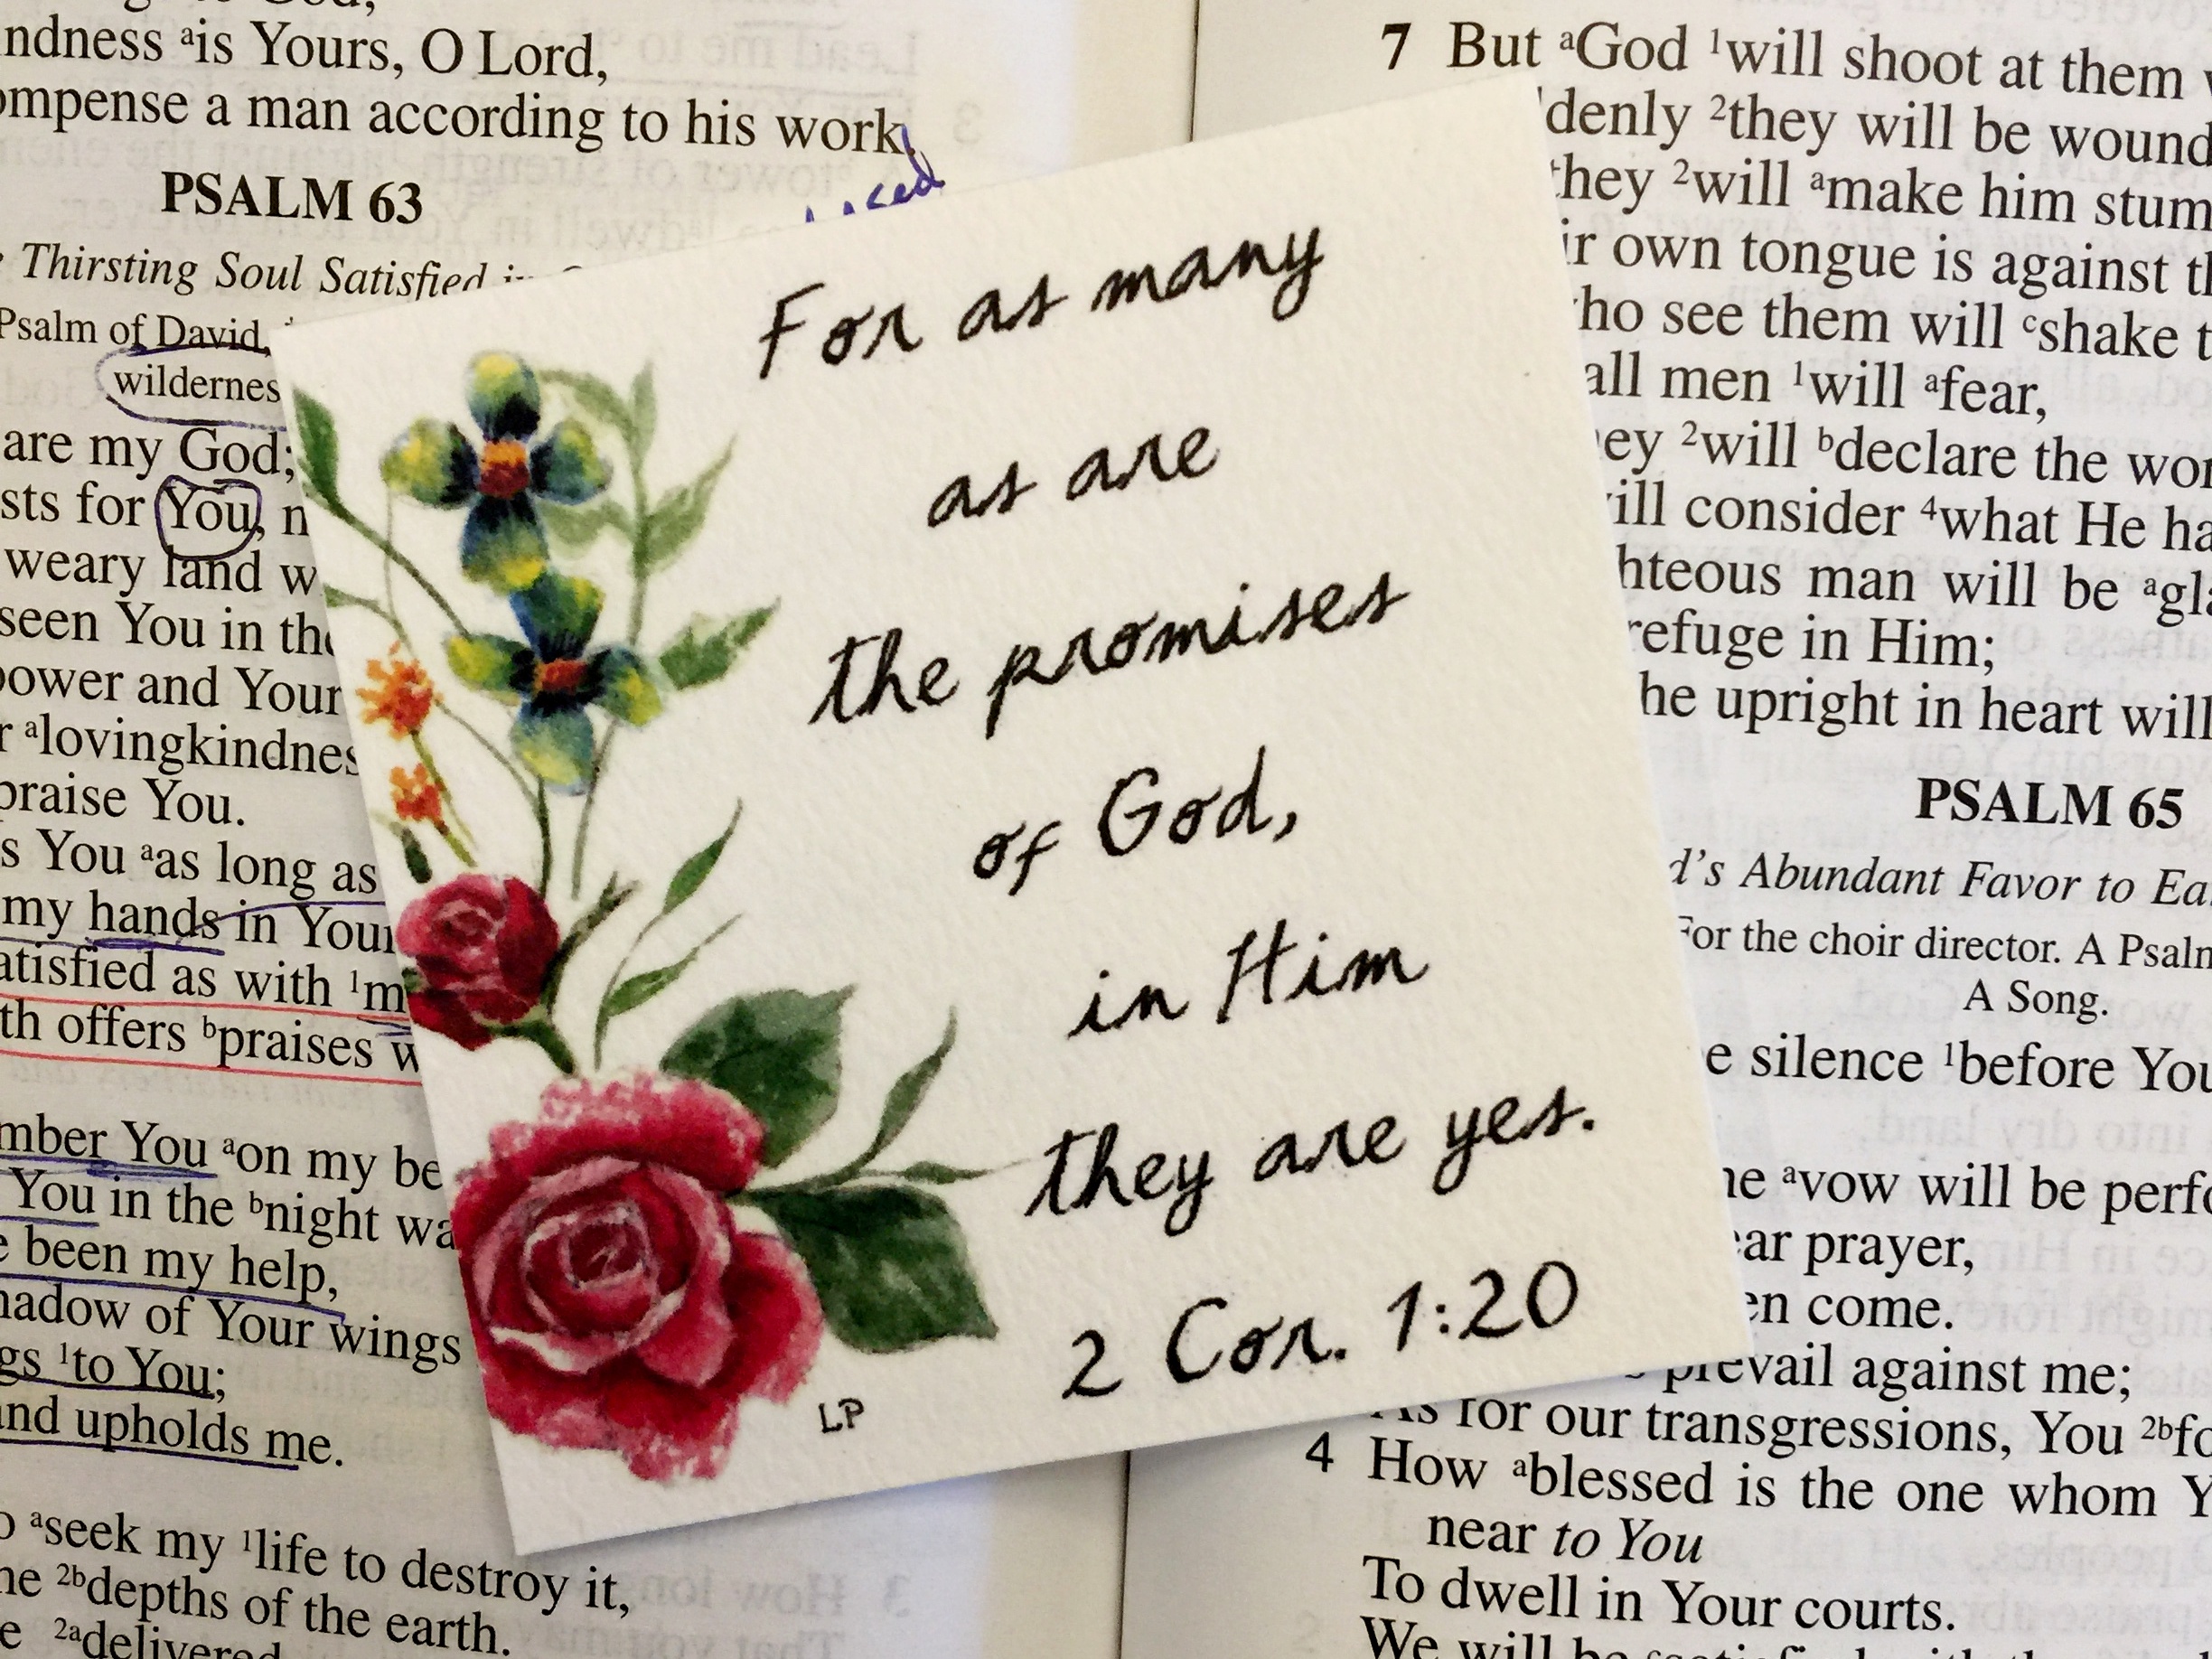 ndness ᵃis Yours, O Lord,
ompense a man according to his work.
PSALM 63
Thirsting Soul Satisfied
Psalm of David,
wildernes
are my God;
sts for You, n
weary land w
seen You in the
power and Your
ᵃlovingkindnes
praise You.
s You ᵃas long as
my hands in Your
atisfied as with ¹m
th offers ᵇpraises w
mber You ᵃon my be
You in the ᵇnight wa
been my help,
hadow of Your wings
gs ¹to You;
and upholds me.
ᵃseek my ¹life to destroy it,
he ²ᵇdepths of the earth.
²ᵃdelivered
For as many
as are
the promises
of God,
in Him
they are yes.
2 Cor. 1:20
LP
7 But ᵃGod ¹will shoot at them
denly ²they will be wound
they ²will ᵃmake him stum
ir own tongue is against th
who see them will ᶜshake t
all men ¹will ᵃfear,
ey ²will ᵇdeclare the wor
ill consider ⁴what He ha
hteous man will be ᵃgla
refuge in Him;
he upright in heart will
PSALM 65
d's Abundant Favor to Ea
For the choir director. A Psalm
A Song.
e silence ¹before You
he ᵃvow will be perfo
ar prayer,
en come.
prevail against me;
As for our transgressions, You ²ᵇfo
4 How ᵃblessed is the one whom Y
near to You
To dwell in Your courts.
We will be